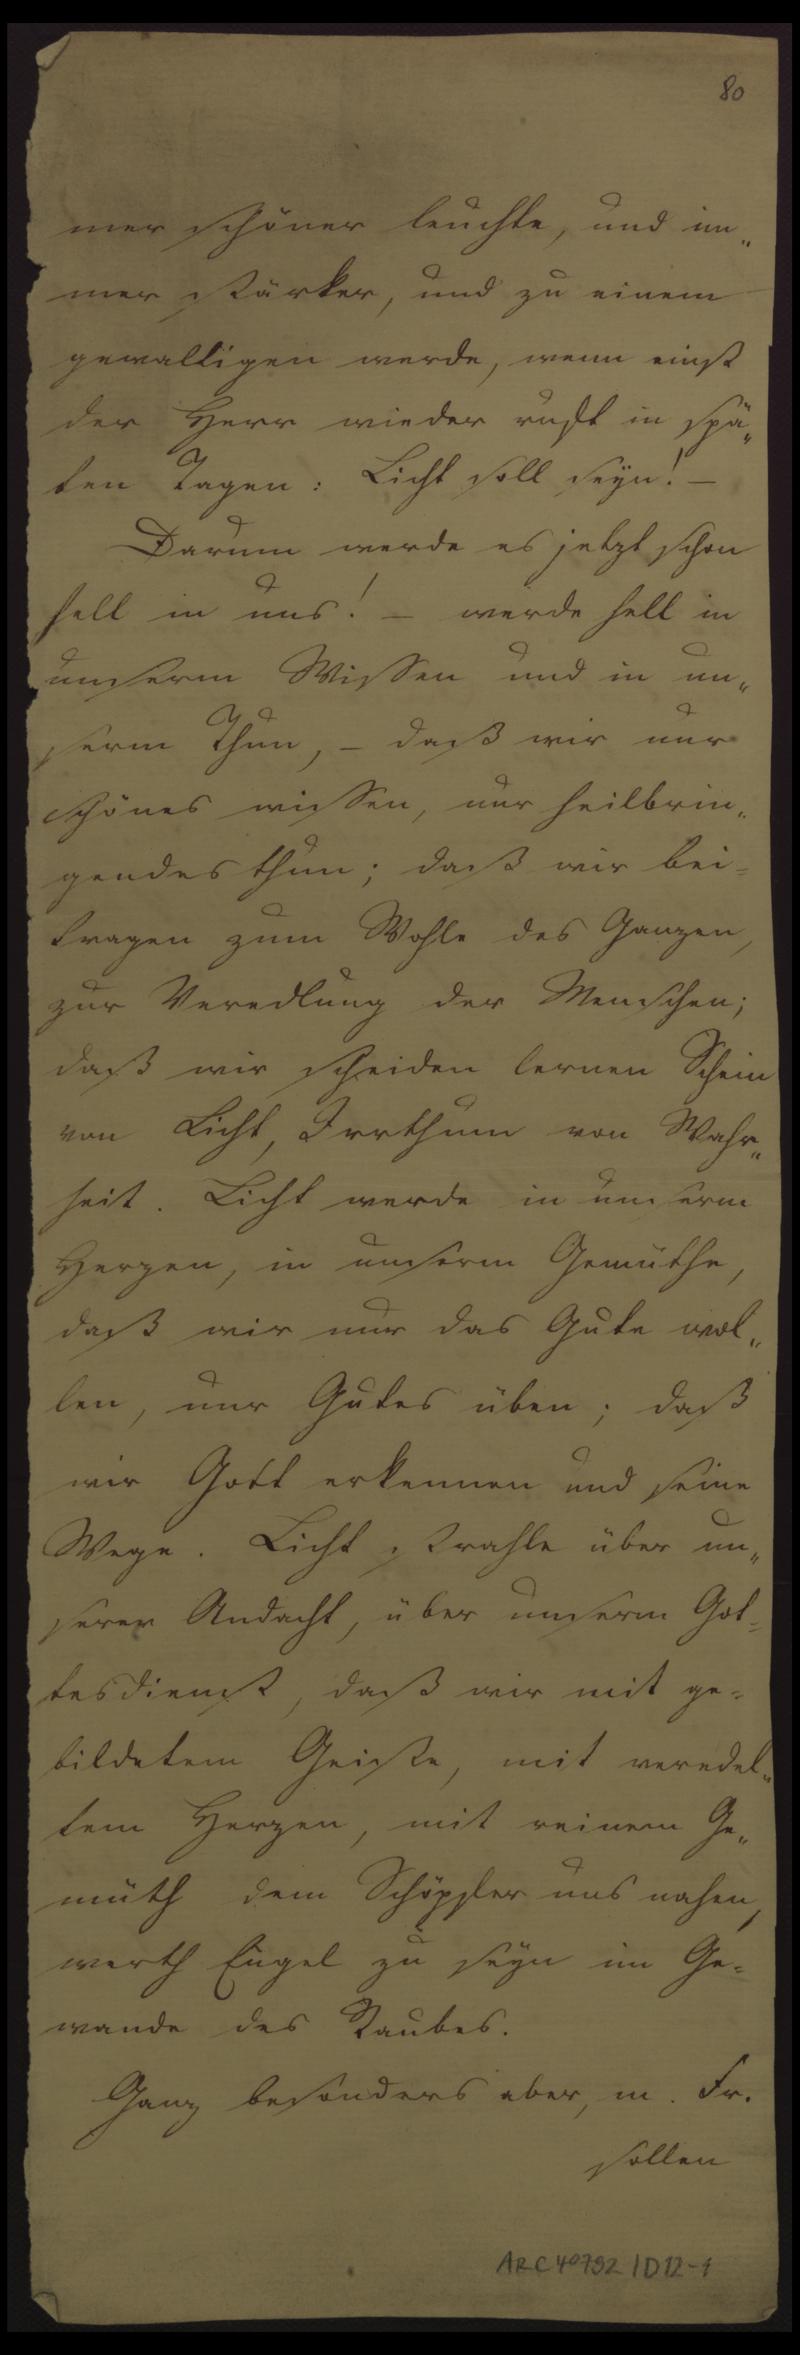 80
mer schöner leuchte, und im„
mer stärker, und zu einem
gewaltigen werde, wenn einst
der Herr wieder ruft in spä„
ten Tagen: Licht soll seyn! —
Darum werde es jetzt schon
hell in uns! — werde hell in
unserm Wissen und in un„
serm Thun, — daß wir nur
schönes wissen, nur heilbrin„
gendes thun; daß wir bei=
tragen zum Wohle des Ganzen,
zur Veredlung der Menschen;
daß wir scheiden lernen Schein
von Licht, Irrthum von Wahr„
heit. Licht werde in unserm
Herzen, in unserm Gemüthe,
daß wir nur das Gute wol„
len, nur Gutes üben; daß
wir Gott erkennen und seine
Wege. Licht strahle über un„
serer Andacht, über unserm Got=
tesdienst, daß wir mit ge=
bildetem Geiste, mit veredel„
tem Herzen, mit reinem Ge„
müth dem Schöpfer uns nahen,
werth Engel zu seyn im Ge=
wande des Staubes.
Ganz besonders aber, m. Fr.
sollen
ARC 4°792 / D12-1